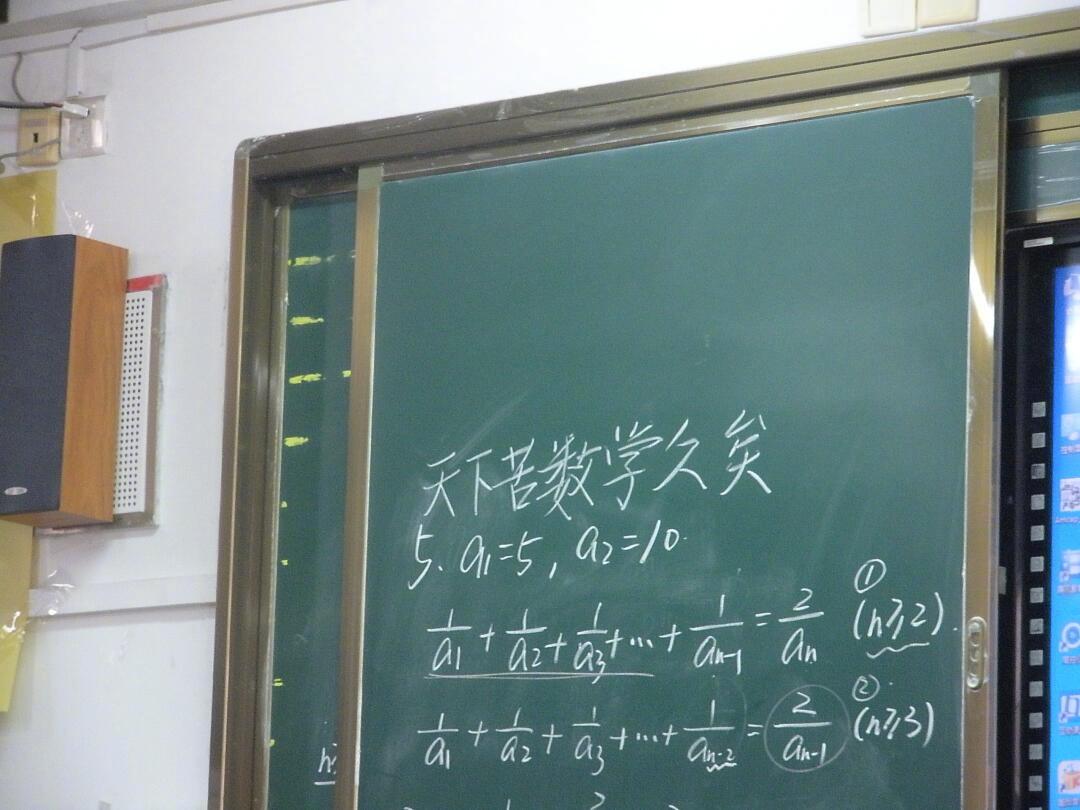 天下苦数学久矣
5、a₁=5, a₂=10.
1/a₁ + 1/a₂ + 1/a₃ + ... + 1/aₙ₋₁ = 2/aₙ (n≥2). ①
1/a₁ + 1/a₂ + 1/a₃ + ... + 1/aₙ₋₂ = 2/aₙ₋₁ (n≥3) ②